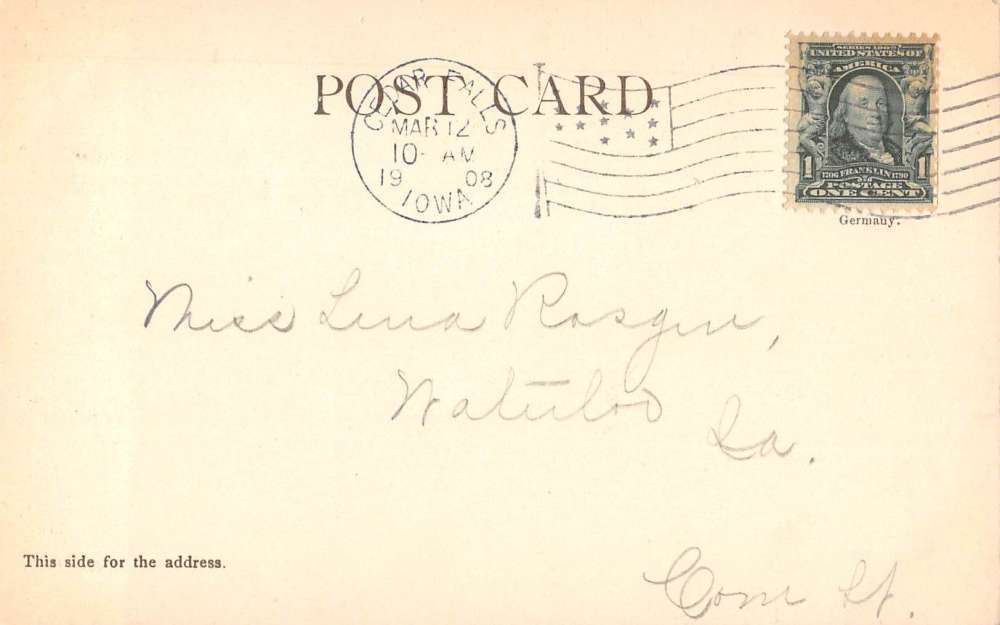 POST CARD
CEDAR FALLS
MAR 12
10- AM
19 08
IOWA
SERIES 1902
UNITED STATES OF
AMERICA
1 1
1706 FRANKLIN 1790
POSTAGE
ONE CENT
Germany.
Miss Lena
Waterloo
Ia.
This side for the address.
St.